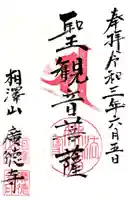 奉拝 令和三年六月五日
聖観音菩薩
相澤山 廣徳寺